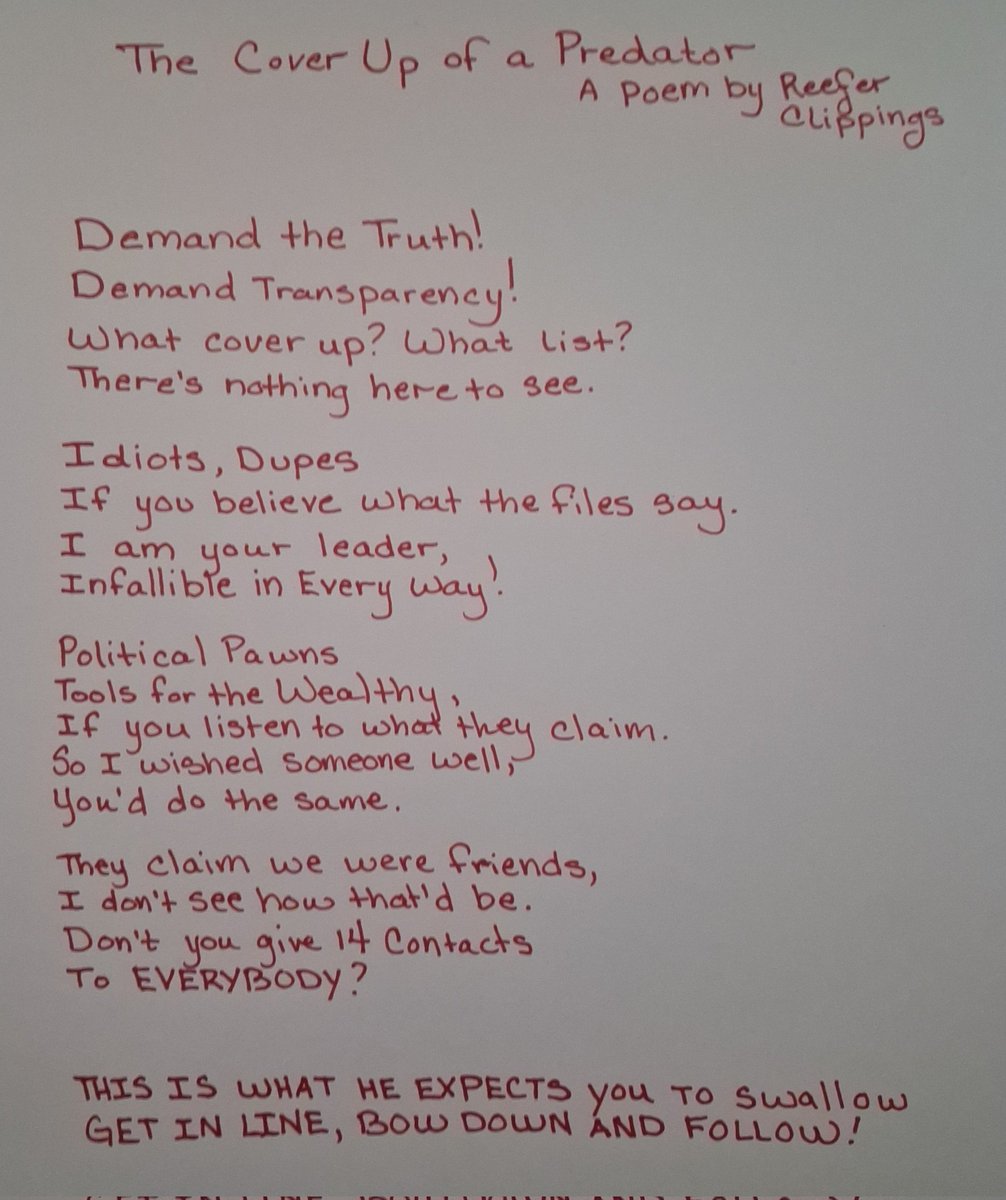 The Cover Up of a Predator
A Poem by Reefer
Clippings
Demand the Truth!
Demand Transparency!
What cover up? What list?
There's nothing here to see.
Idiots, Dupes
If you believe what the files say.
I am your leader,
Infallible in Every way!
Political Pawns
Tools for the Wealthy,
If you listen to what they claim.
So I wished someone well,
You'd do the same.
They claim we were friends,
I don't see how that'd be.
Don't you give 14 Contacts
To EVERYBODY?
THIS IS WHAT HE EXPECTS you TO swallow
GET IN LINE, BOW DOWN AND FOLLOW!